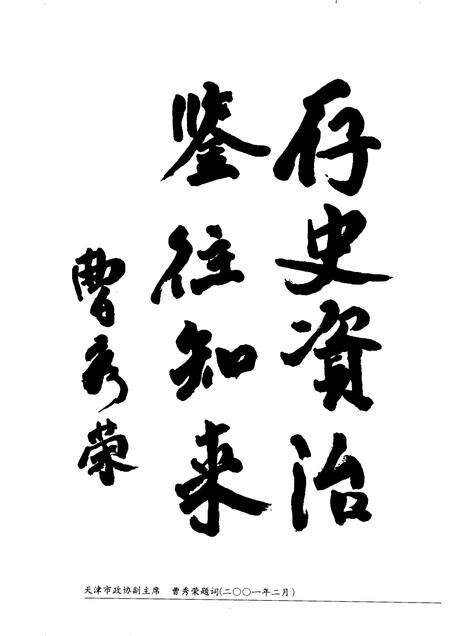 存史資治
鉴往知来
曹秀荣
天津市政协副主席 曹秀荣题词(二〇〇一年二月)